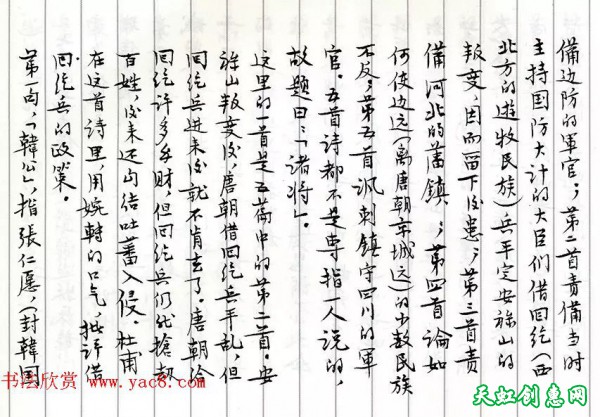 備边防的軍官；第二首責備当时
主持国防大計的大臣们借回紇（西
北方的遊牧民族）兵平定安祿山的
叛变，因而留下後患；第三首責
備河北的藩镇；第四首論如
何使边远（离唐朝京城远）的少数民族
不反；第五首諷刺鎮守四川的軍
官。五首诗都不是専指一人説的，
故题曰：「诸将」。
这里的一首是五篇中的第二首。安
祿山叛变後，唐朝借回紇兵平乱，但
回紇兵进来後就不肯去了。唐朝给
回紇许多财，但回紇兵仍然搶劫
百姓，後来还勾结吐蕃入侵。杜甫
在这首诗里，用婉轉的口气，批评借
回紇兵的政策。
第一句，「韓公」，指張仁愿，（封韓国
书法欣赏 www.yac8.com
天虹创意网